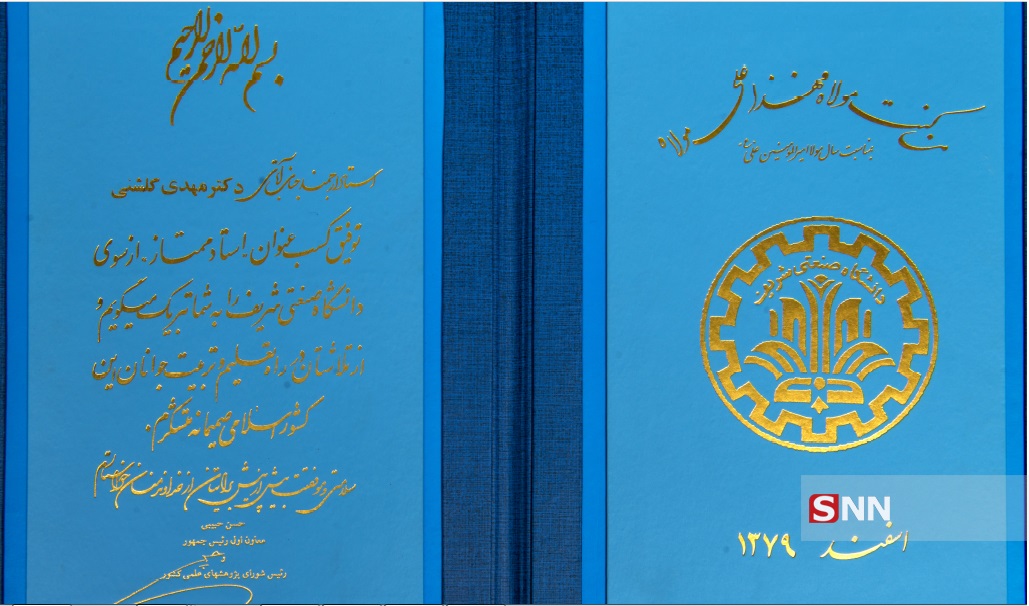 من کنت مولاه فهذا علی مولاه
بمناسبت سال مولا امیرالمومنین علی
دانشگاه صنعتی شریف
اسفند ۱۳۷۹
SNN
بسم الله الرحمن الرحیم
استاد ارجمند جناب آقای دکتر مهدی گلشنی
توفیق کسب عنوان استاد ممتاز از سوی
دانشگاه صنعتی شریف را به شما تبریک میگویم و
از تلاشتان در راه تعلیم و تربیت جوانان این
کشور اسلامی صمیمانه متشکرم.
سلامتی و موفقیت بیش از پیش برایتان از خداوند منان خواهانم
حسن حبیبی
معاون اول رئیس جمهور
و
رئیس شورای پژوهشهای علمی کشور